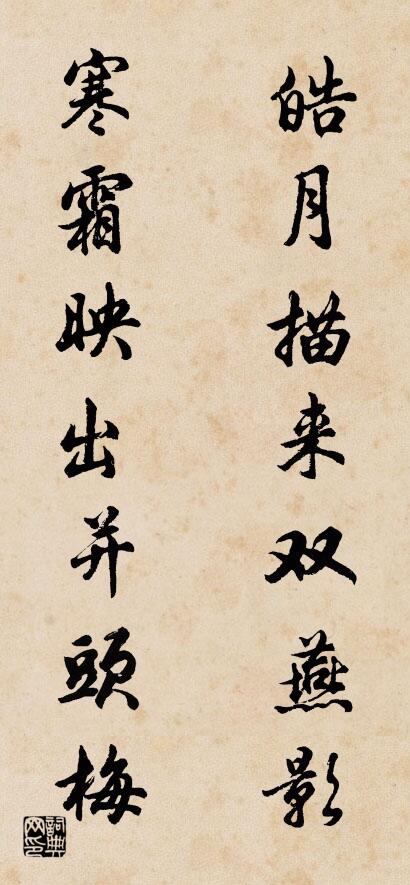 皓月描来双燕影
寒霜映出并頭梅
詞典网印